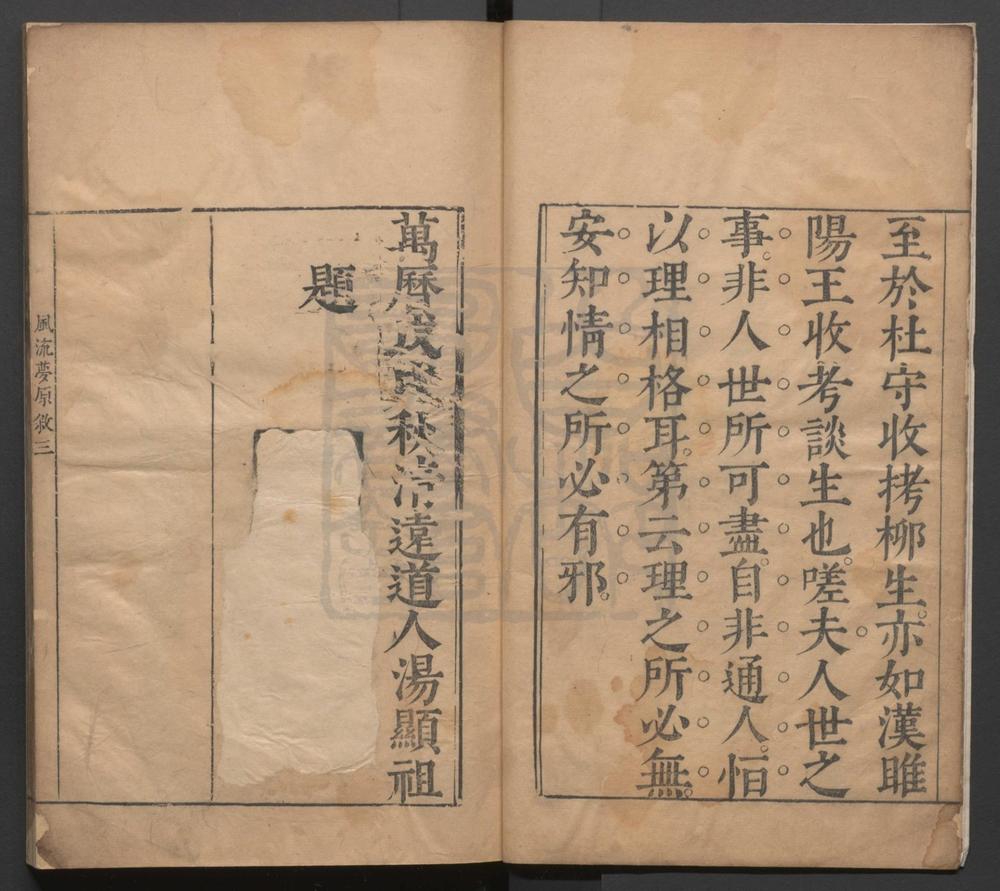 至於杜守收拷柳生。亦如漢雎
陽王收考談生也。嗟夫。人世之
事。非人世所可盡。自非通人。恒
以理相格耳。第云理之所必無。
安知情之所必有邪。
萬曆戊戌秋清遠道人湯顯祖
題
風流夢原敘 三